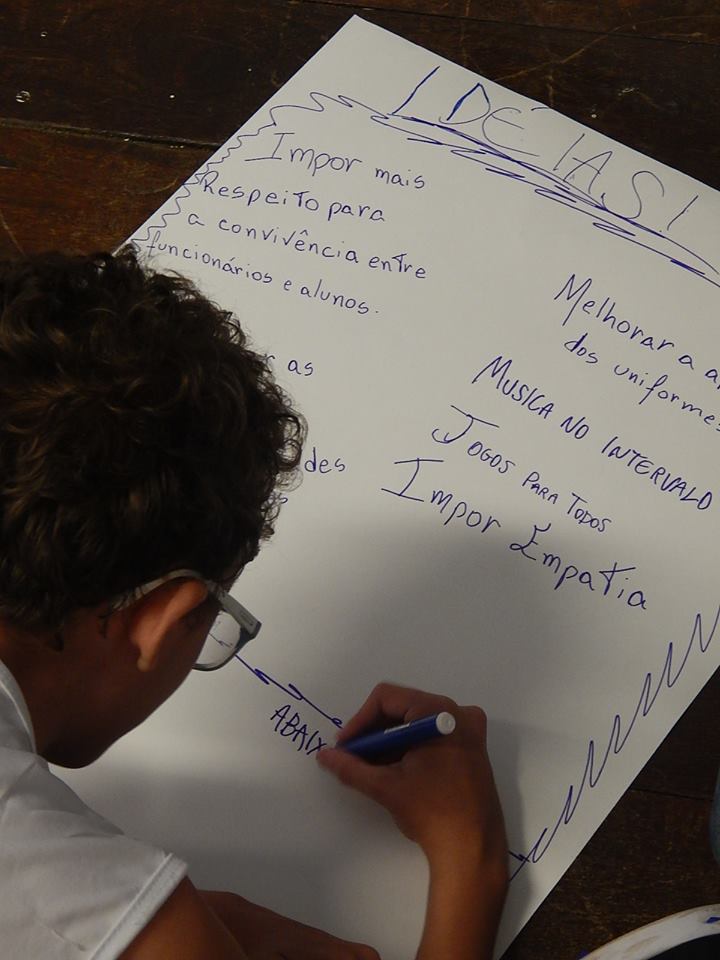 IDÉIAS!
Impor mais
Respeito para
a convivência entre
funcionários e alunos.
as
des
Melhorar a
dos uniformes
MUSICA NO INTERVALO
JOGOS PARA TODOS
Impor Empatia
ABAIX